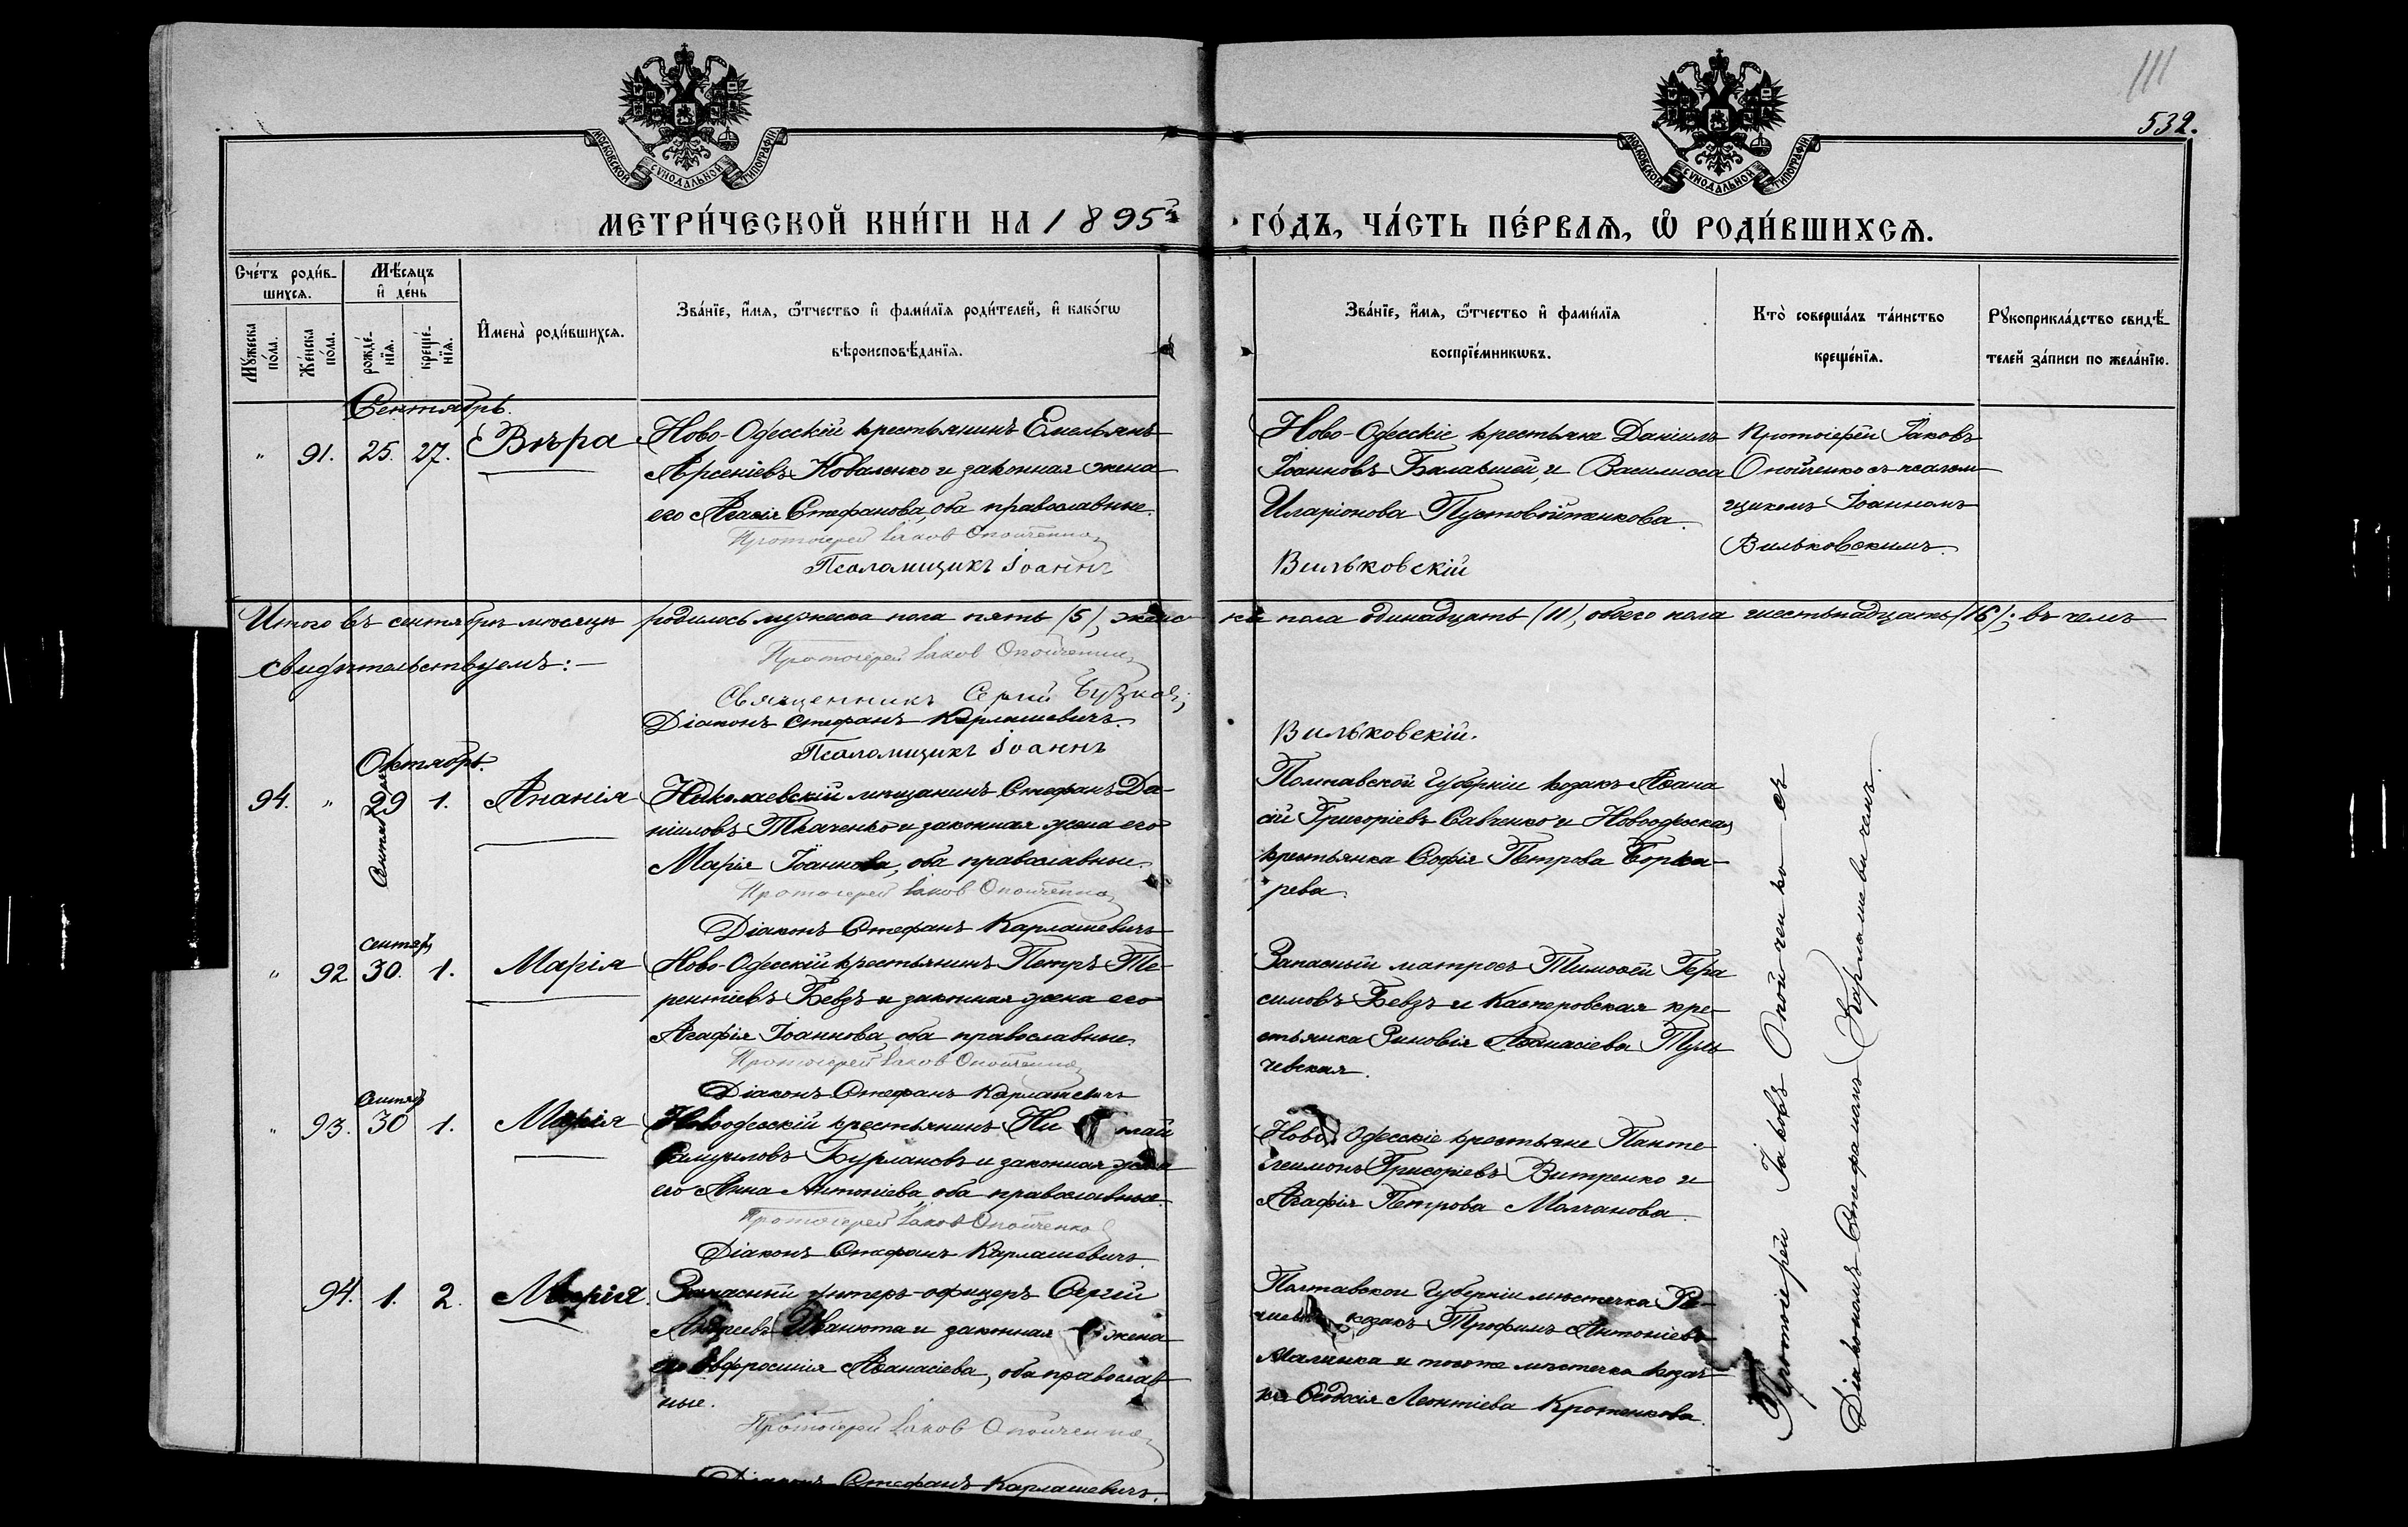 111
532.
МОСКОВСКОЙ СѴНОДАЛЬНОЙ ТИПОГРАФІИ
МОСКОВСКОЙ СѴНОДАЛЬНОЙ ТИПОГРАФІИ
МЕТРИ́ЧЕСКОЙ КНИ́ГИ НА 1895й ГО́ДЪ, ЧА́СТЬ ПЕ́РВАѦ, Ѡ҆ РОДИ́ВШИХСѦ.
Сче́тъ роди́в-
шихсѧ.
Мꙋ́жеска по́ла.
Же́нска по́ла.
Мѣ́сѧцъ
и҆ де́нь
рожде́-
нїѧ.
креще́-
нїѧ.
И҆мена̀ роди́вшихсѧ.
Зва́нїе, и҆́мѧ, ѻ҆́тчество и҆ фами́лїѧ роди́телей, и҆ како́гѡ
вѣроисповѣ́данїѧ.
Зва́нїе, и҆́мѧ, ѻ҆́тчество и҆ фами́лїѧ
воспрїе́мникѡвъ.
Кто̀ соверша́лъ та́инство
креще́нїѧ.
Рꙋкоприкла́дство свидѣ́-
телей за́писи по жела́нїю.
Сентябрь.
" 91. 25. 27. Вѣра
Ново-Одесскій крестьянинъ Емельянъ
Арсеніевъ Коваленко и законная жена
его Агаѳія Стефанова, оба православные.
Протоіерей Іаков Опойченко
Псаломщикъ Іоаннъ
Ново-Одесскіе крестьяне Даніилъ
Іоанновъ Балакшей, и Василисса
Иларіонова Пустовойтенкова.
Вильковскій
Протоіерей Іаковъ
Опойченко съ псалом-
щикомъ Іоанномъ
Вильковскимъ.
Итого въ сентябрѣ мѣсяцѣ родилось мужеска пола пять (5), женска пола одинадцать (11), обоего пола шестьнадцать (16); въ чемъ
свидѣтельствуемъ: —
Протоіерей Іаков Опойченко
Священникъ Сергій
Діаконъ Стефанъ Карлашевичъ.
Псаломщикъ Іоаннъ
Вильковскій.
Октябрь.
94. " 29 1. Ананія
Николаевскій мѣщанинъ Стефанъ Да-
ніиловъ Ткаченко и законная жена его
Марія Іоаннова, оба православные.
Протоіерей Іаков Опойченко
Діаконъ Стефанъ Карлашевичъ
Полтавской губерніи козакъ Аѳана
сій Григоріевъ Савченко и Новоодесская
крестьянка Софія Петрова Борка-
рева.
Сентяб
" 92 30. 1. Марія
Ново-Одесскій крестьянинъ Петръ Те-
рентіевъ Бевзъ и законная жена его
Агафія Іоаннова, оба православные.
Протоіерей Іаков Опойченко
Діаконъ Стефанъ Карлашевичъ
Запасный матросъ Тимоѳей Гера
симовъ Бевзъ и Касперовская кре-
стьянка Зиновія Аѳанасіева Туль
чевская.
Сентяб
" 93. 30 1. Марія
Новоодесскій крестьянинъ Ни лай
Самуиловъ Бурлаковъ и законная жена
его Анна Антоніева, оба православные.
Протоіерей Іаков Опойченко
Діаконъ Стефанъ Карлашевичъ.
Ново-Одесскіе крестьяне Панте
леимонъ Григоріевъ Витренко и
Агафія Петрова Молчанова.
94. 1. 2. Марія.
Запасный унтеръ-офицеръ Сергій
Андреевъ Иванюта и законная жена
его Евфросинія Аѳанасіева, оба православ
ные.
Протоіерей Іаков Опойченко
Діаконъ Стефанъ Карлашевичъ.
Полтавской губерніи мѣстечка Ре-
козакъ Трофимъ Антоніевъ
Малинка и того же мѣстечка козач
ка Ѳеодосія Леонтіева Кротенкова.
Протоіерей Іаковъ Опойченко съ
Діакономъ Стефаномъ Карлашевичемъ.